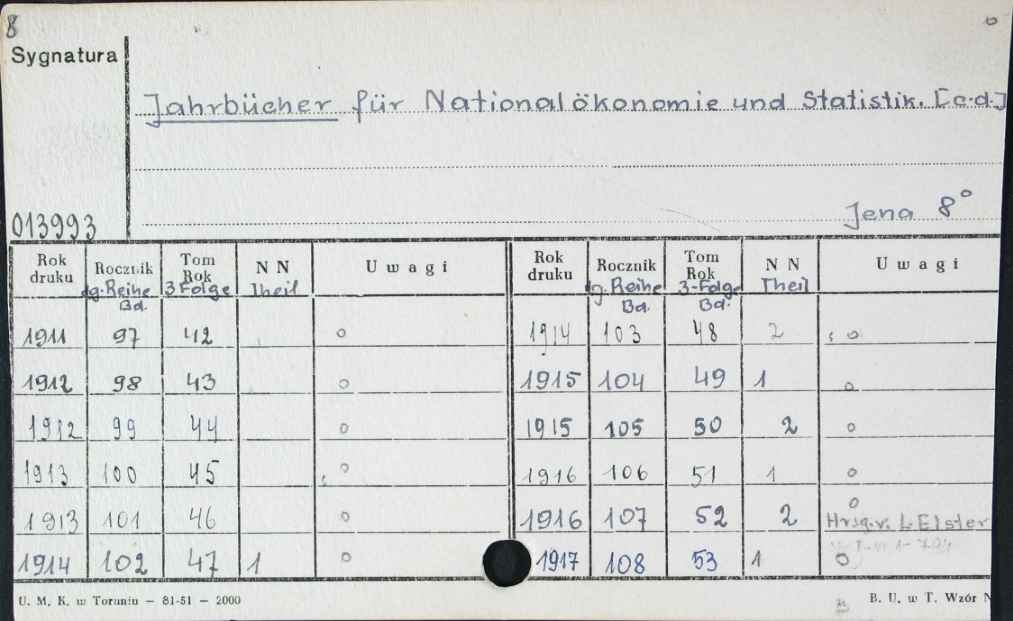 8
Sygnatura
Jahrbücher für Nationalökonomie und Statistik. [c.d.]
Jena 8°
013993
Rok druku Rocznik Tom Rok N N Uwagi Rok druku Rocznik Tom Rok N N Uwagi
g. Reihe Bd. 3 Folge Theil g. Reihe Bd. 3-Folge Bd. Theil
1911 97 42 o 1914 103 48 2 o
1912 98 43 o 1915 104 49 1 o
1912 99 44 o 1915 105 50 2 o
1913 100 45 o 1916 106 51 1 o
1913 101 46 o 1916 107 52 2 o Hrsg. v. L. Elster
1914 102 47 1 o 1917 108 53 1 o
U. M. K. w Toruniu — 81-51 — 2000
B. U. w T. Wzór N